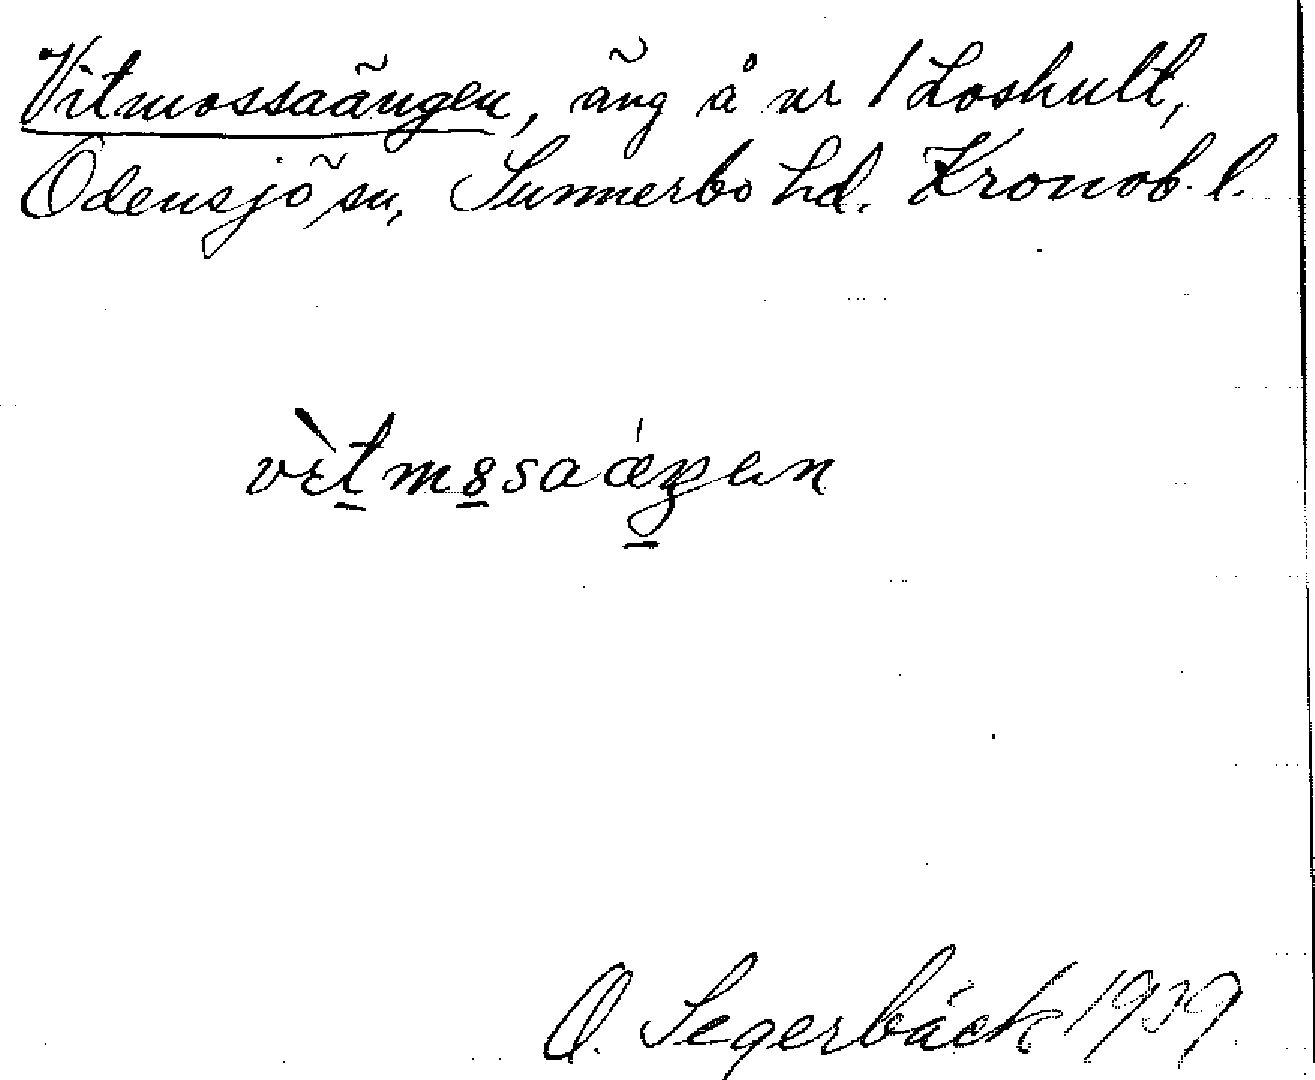 Vitmossaängen, äng å nr 1 Loshult,
Odensjö sn, Sunnerbo hd. Kronob. l.
vètmo̲saǽŋen
O. Segerbäck 1939